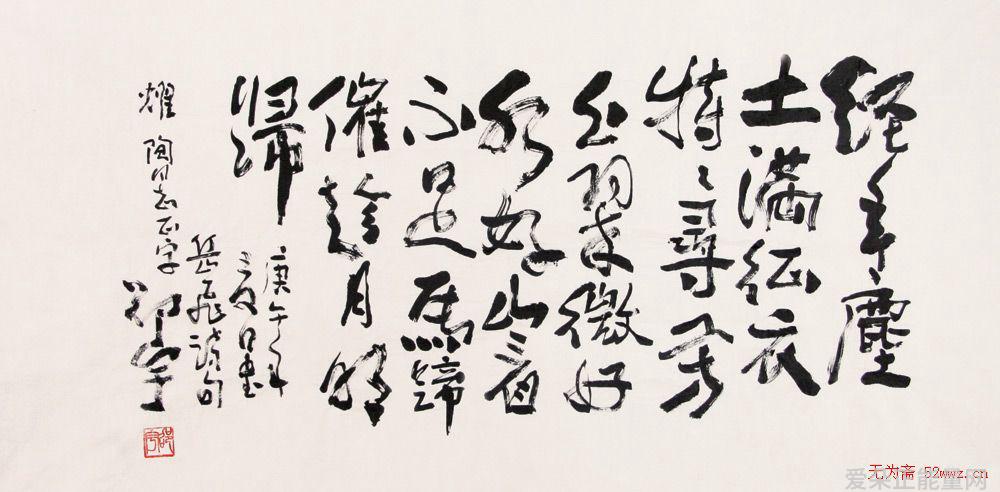 經年塵
土滿征衣
特々尋芳
上翠微好
水好山看
不足馬蹄
催趁月明
歸
庚午年
夏日書
岳飛詩句
耀陶同志正字
无为斋 52wwz.cn
正能量网